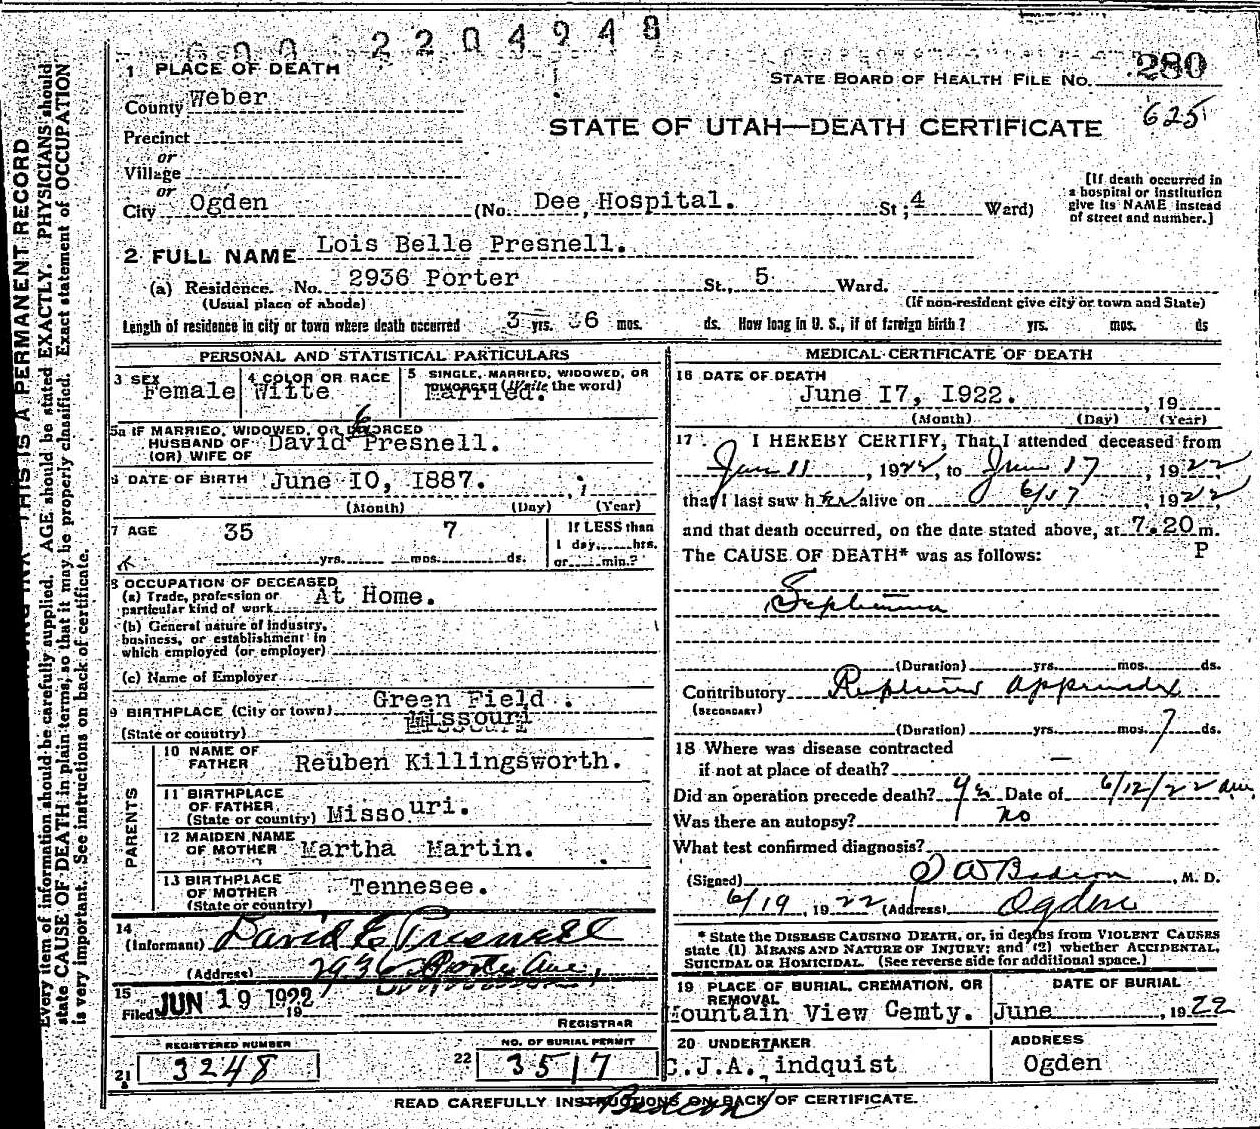 600 2204948
1 PLACE OF DEATH
STATE BOARD OF HEALTH FILE NO. 280
County Weber
625
STATE OF UTAH—DEATH CERTIFICATE
Precinct
or
Village
or
City Ogden (No. Dee Hospital. St; 4 Ward)
[If death occurred in
a hospital or institution
give its NAME instead
of street and number.]
2 FULL NAME Lois Belle Presnell.
(a) Residence. No. 2936 Porter St., 5 Ward.
(Usual place of abode) (If non-resident give city or town and State)
Length of residence in city or town where death occurred 3 yrs. 6 mos. ds. How long in U. S., if of foreign birth? yrs. mos. ds
PERSONAL AND STATISTICAL PARTICULARS
3 SEX Female
4 COLOR OR RACE Witte
5 SINGLE, MARRIED, WIDOWED, OR
DIVORCED (Write the word)
Married.
5a IF MARRIED, WIDOWED, OR DIVORCED
HUSBAND OF
(OR) WIFE OF David Presnell.
6
6 DATE OF BIRTH June I0, I887.
(Month) (Day) (Year)
7 AGE 35 yrs. 7 mos. ds.
If LESS than
1 day, hrs.
or min.?
8 OCCUPATION OF DECEASED
(a) Trade, profession or
particular kind of work At Home.
(b) General nature of industry,
business, or establishment in
which employed (or employer)
(c) Name of Employer
9 BIRTHPLACE (City or town) Green Field.
(State or country) Missouri
PARENTS
10 NAME OF
FATHER Reuben Killingsworth.
11 BIRTHPLACE
OF FATHER
(State or country) Missouri.
12 MAIDEN NAME
OF MOTHER Martha Martin.
13 BIRTHPLACE
OF MOTHER
(State or country) Tennesee.
14
(Informant) David E Presnell
(Address) 2936 Porter Ave,
15
Filed JUN 19 1922 19
REGISTRAR
REGISTERED NUMBER
21 3248
NO. OF BURIAL PERMIT
22 3517
MEDICAL CERTIFICATE OF DEATH
16 DATE OF DEATH
June I7, I922. , 19
(Month) (Day) (Year)
17. I HEREBY CERTIFY, That I attended deceased from
Jun 11, 1922, to June 17, 1922
that I last saw her alive on 6/17 1922
and that death occurred, on the date stated above, at 7.20 m.
P
The CAUSE OF DEATH* was as follows:
Septicemia
(Duration) yrs. mos. ds.
Contributory Ruptured appendix
(SECONDARY)
(Duration) yrs. mos. 7 ds.
18 Where was disease contracted
if not at place of death? —
Did an operation precede death? Yes Date of 6/12/22
Was there an autopsy? no
What test confirmed diagnosis?
(Signed) Badcon, M. D.
6/19, 1922 (Address) Ogden
* State the DISEASE CAUSING DEATH, or, in deaths from VIOLENT CAUSES
state (1) MEANS AND NATURE OF INJURY; and (2) whether ACCIDENTAL,
SUICIDAL OR HOMICIDAL. (See reverse side for additional space.)
19 PLACE OF BURIAL, CREMATION, OR
REMOVAL
Mountain View Cemty.
DATE OF BURIAL
June , 1922
20 UNDERTAKER
C.J.A. indquist
ADDRESS
Ogden
READ CAREFULLY INSTRUCTIONS ON BACK OF CERTIFICATE.
Badcon
THIS IS A PERMANENT RECORD
Every item of information should be carefully supplied. AGE should be stated EXACTLY. PHYSICIANS should
state CAUSE OF DEATH in plain terms, so that it may be properly classified. Exact statement of OCCUPATION
is very important. See instructions on back of certificate.